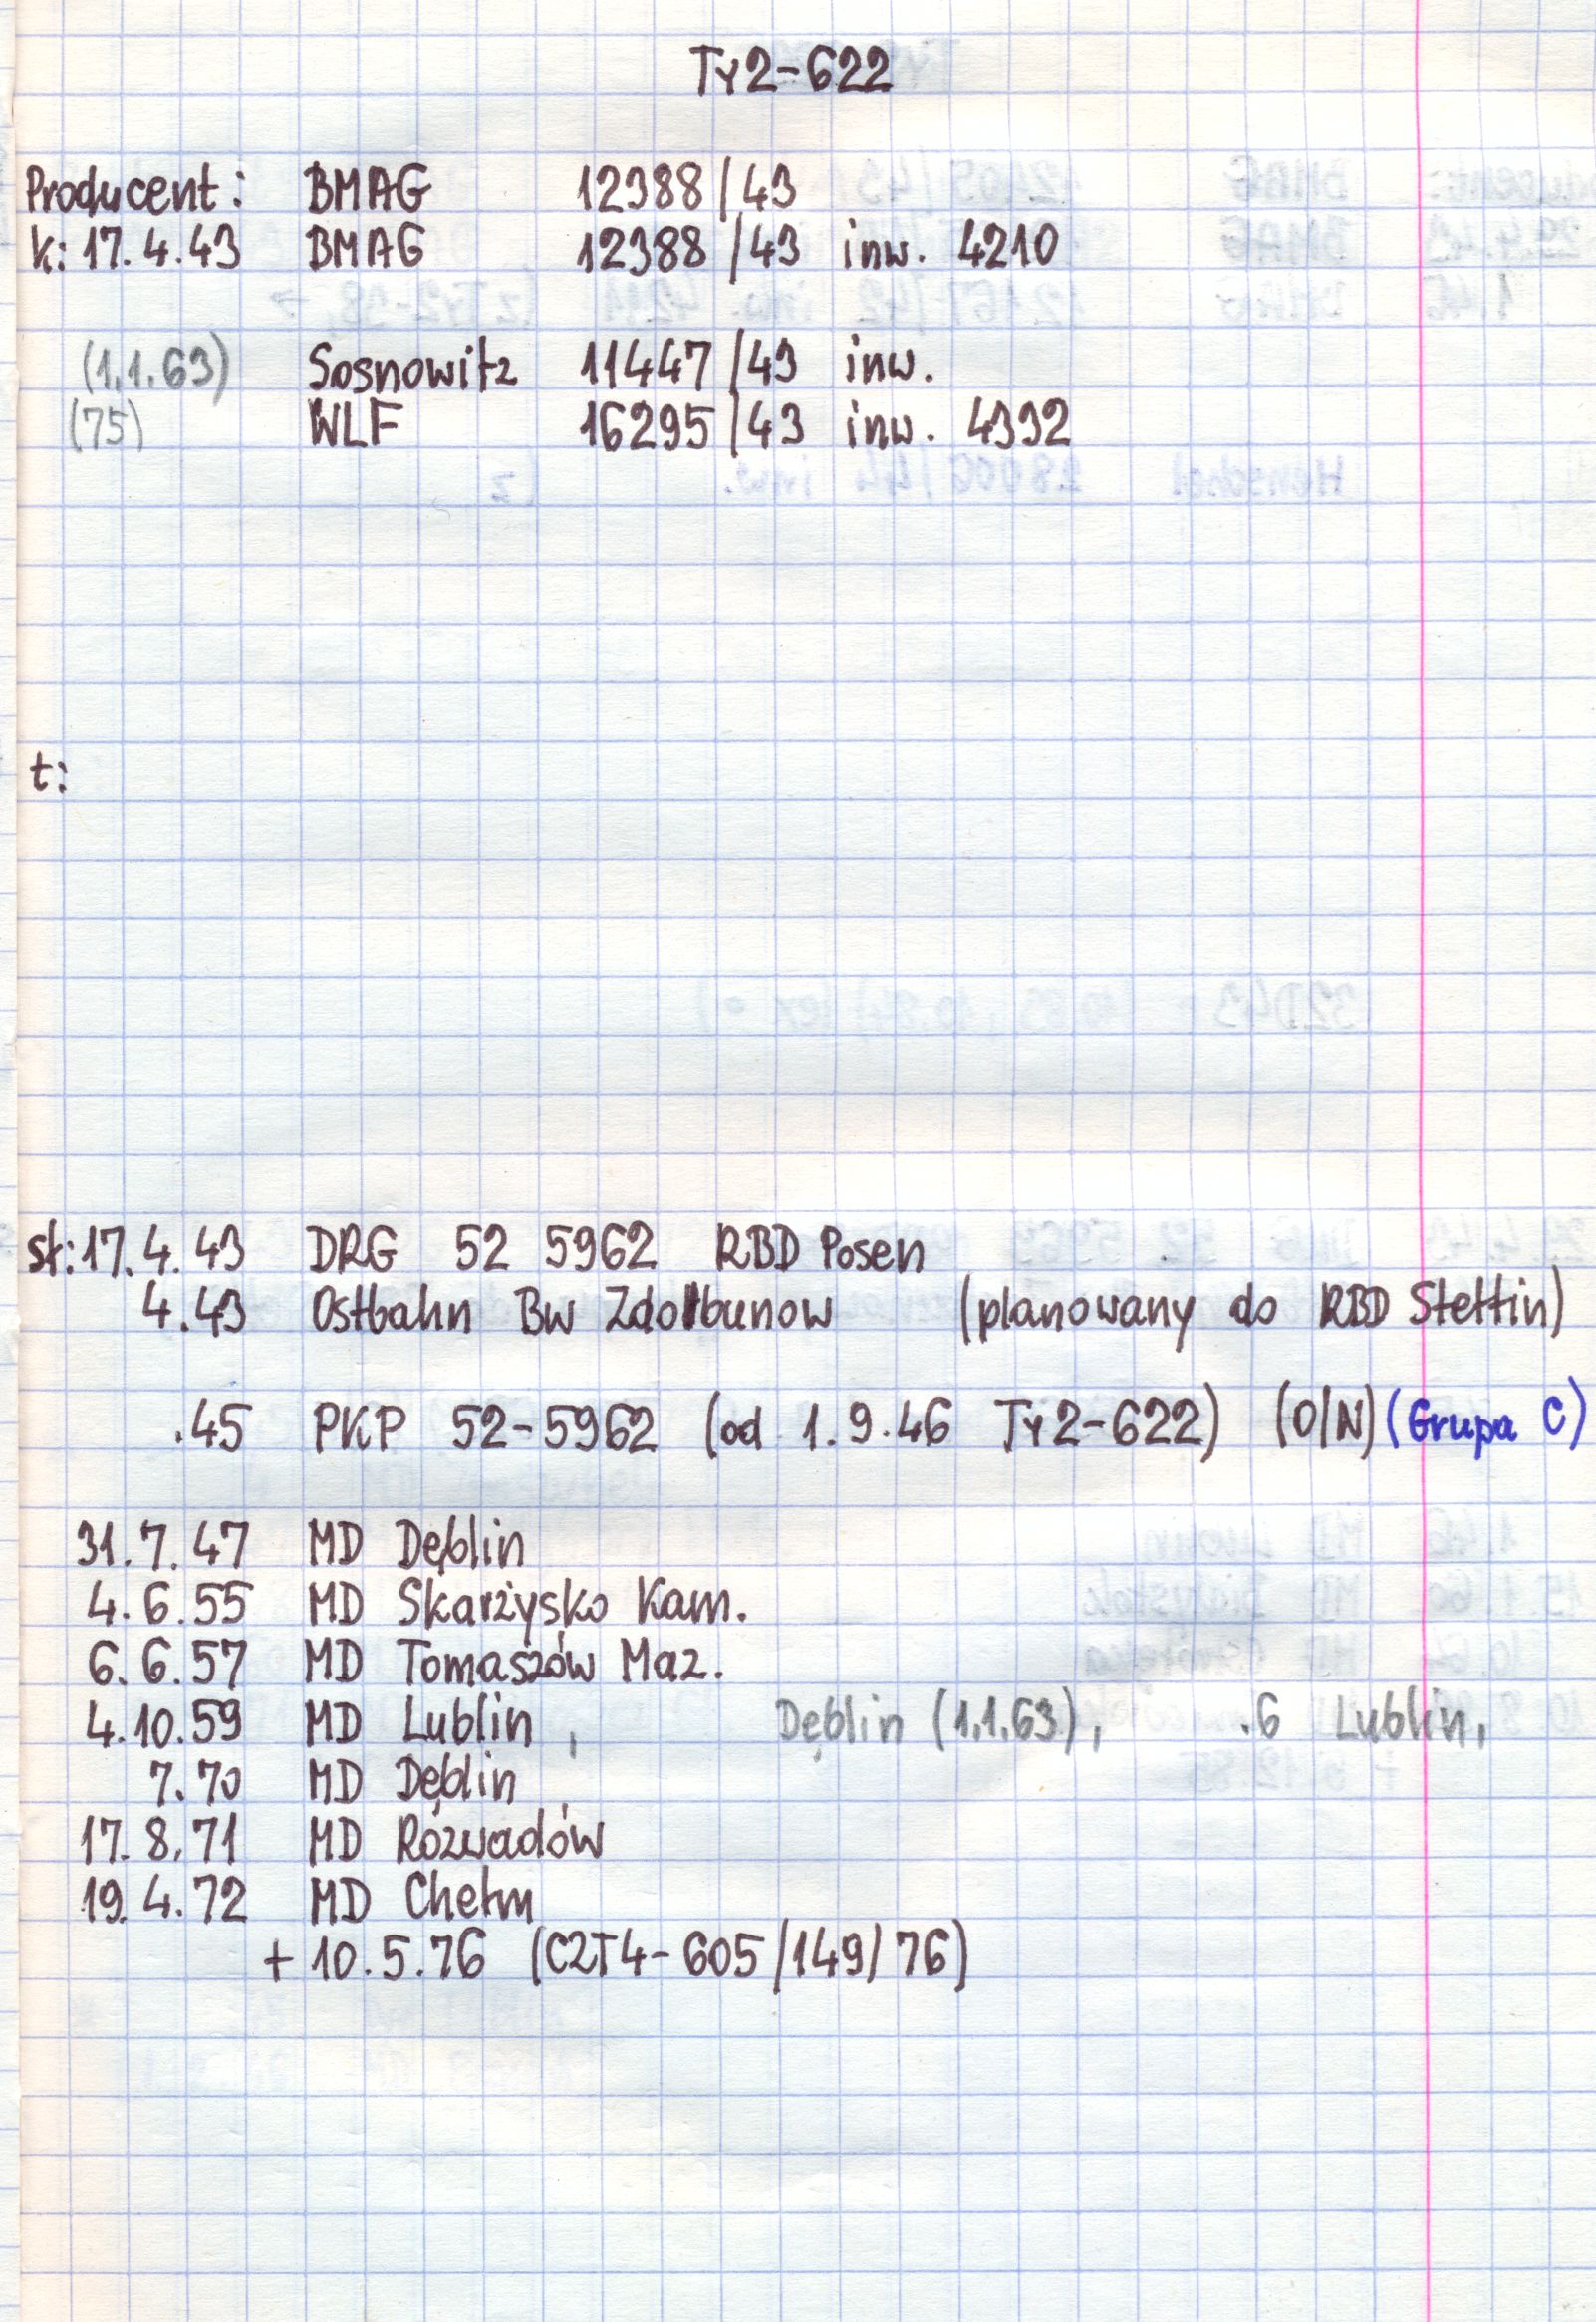 Ty2-622
Producent: BMAG 12388/43
k: 17.4.43 BMAG 12388/43 inw. 4210
(1.1.63) Sosnowitz 11447/43 inw.
(75) WLF 16295/43 inw. 4332
t:
st: 17.4.43 DRG 52 5962 RBD Posen
4.43 Ostbahn Bw Zdolbunow (planowany do RBD Stettin)
.45 PKP 52-5962 (od 1.9.46 Ty2-622) (O/N) (Grupa C)
31.7.47 MD Dęblin
4.6.55 MD Skarżysko Kam.
6.6.57 MD Tomaszów Maz.
4.10.59 MD Lublin , Dęblin (1.1.63), .6 Lublin,
7.70 MD Dęblin
17.8.71 MD Rozwadów
19.4.72 MD Chełm
+ 10.5.76 (C2T4-605/149/76)